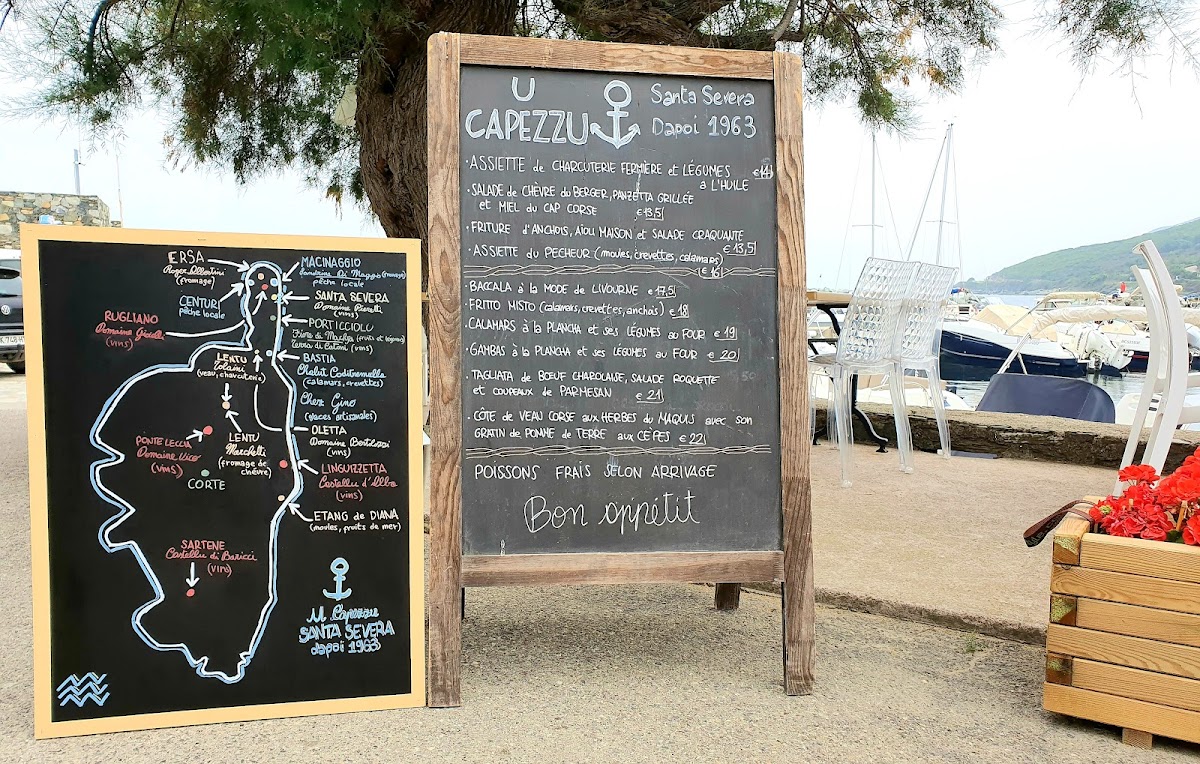 ERSA
Roger Albertini
(fromage)
MACINAGGIO
Sandrine Di Maggio (fromage)
pêche locale
CENTURI
pêche locale
SANTA SEVERA
Domaine
(vins)
RUGLIANO
Domaine Gioielli
(vins)
PORTICCIOLU
(fruits et légumes)
(vins)
LENTU
Colaini
(veau, charcuterie)
BASTIA
Chalut Bastia
(calamars, crevettes)
Chez Gino
(glaces artisanales)
OLETTA
Domaine
(vins)
LENTU
Marchetti
(fromage de
chèvre)
PONTE LECCIA
Domaine Vico
(vins)
CORTE
LINGUIZZETTA
Castellu d'Alba
(vins)
ETANG de DIANA
(moules, fruits de mer)
SARTENE
Castellu di Baricci
(vins)
U Capezzu
SANTA SEVERA
dapoi 1963
U
CAPEZZU
Santa Severa
Dapoi 1963
· ASSIETTE de CHARCUTERIE FERMIÈRE et LÉGUMES
à L'HUILE €14
· SALADE de CHÈVRE du BERGER, PANZETTA GRILLÉE
et MIEL du CAP CORSE €13,5
· FRITURE d'ANCHOIS, AÏOLI MAISON et SALADE CRAQUANTE
€13,5
· ASSIETTE du PECHEUR (moules, crevettes, calamars)
€16
· BACCALA à la MODE de LIVOURNE €17,5
· FRITO MISTO (calamars, crevettes, anchois) €18
· CALAMARS à la PLANCHA et ses LÉGUMES au FOUR €19
· GAMBAS à la PLANCHA et ses LÉGUMES au FOUR €20
· TAGLIATA de BŒUF CHAROLAISE, SALADE ROQUETTE
et COUPEAUX de PARMESAN €21
· CÔTE de VEAU CORSE aux HERBES du MAQUIS avec son
GRATIN de POMME de TERRE aux CÈPES €22
POISSONS FRAIS SELON ARRIVAGE
Bon appétit